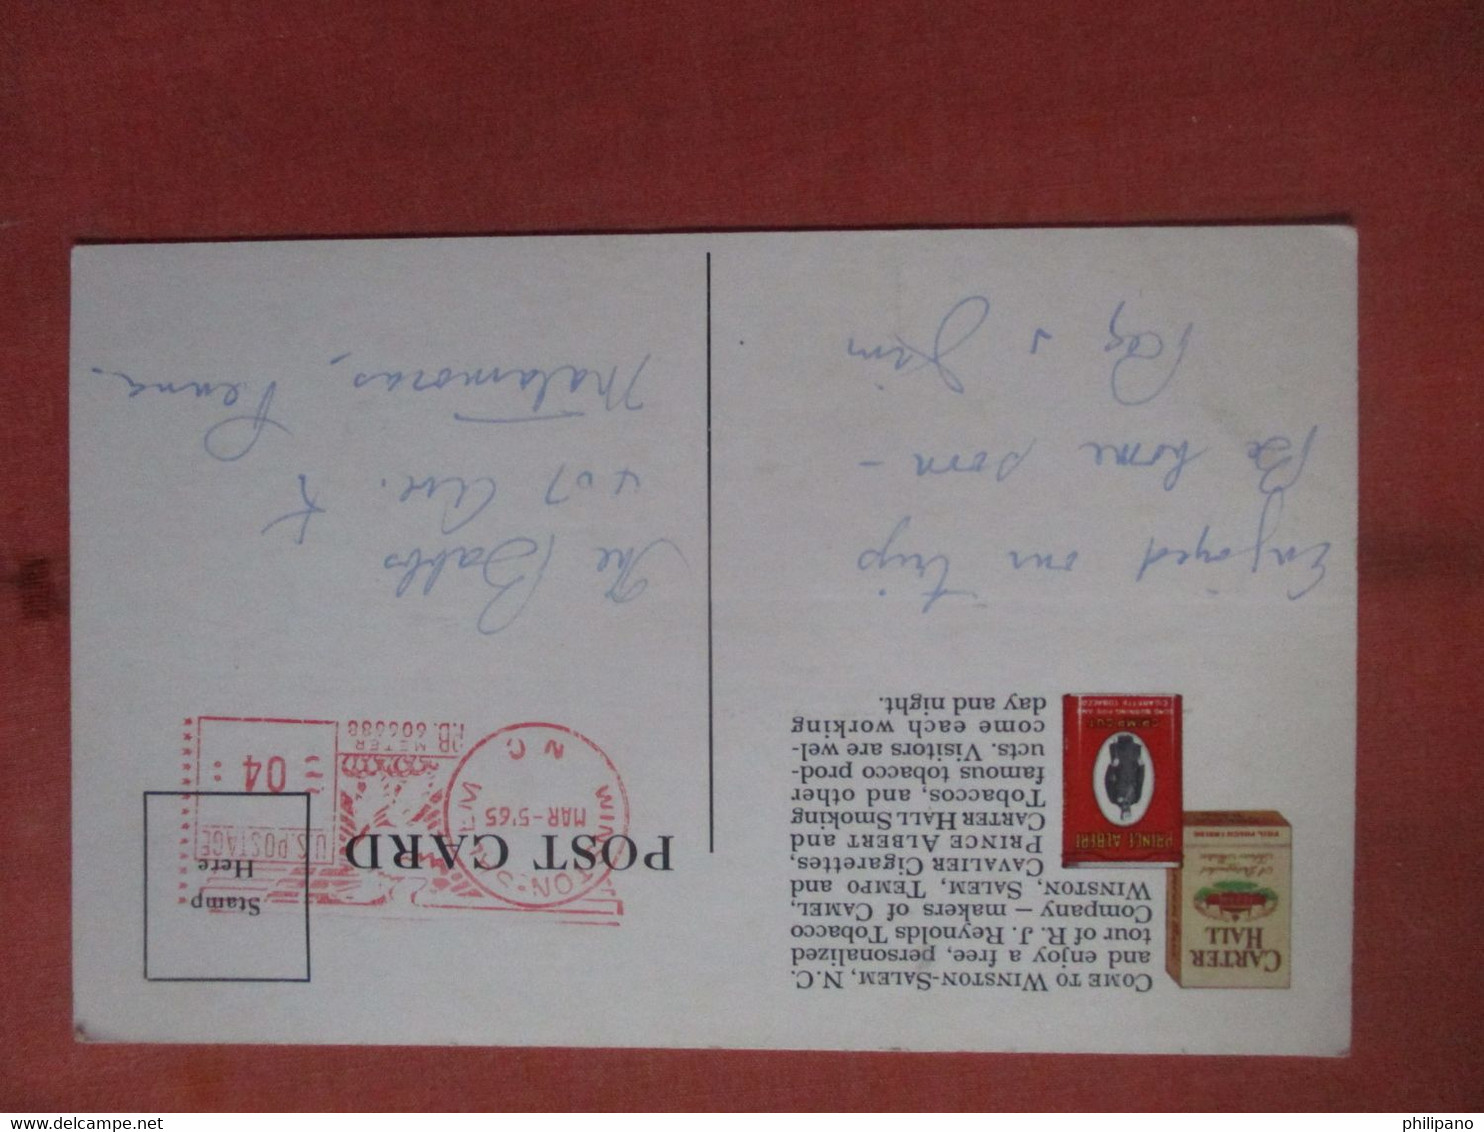 COME TO WINSTON-SALEM, N.C.
and enjoy a free, personalized
tour of R. J. Reynolds Tobacco
Company — makers of CAMEL,
WINSTON, SALEM, TEMPO and
CAVALIER Cigarettes,
PRINCE ALBERT and
CARTER HALL Smoking
Tobaccos, and other
famous tobacco prod-
ucts. Visitors are wel-
come each working
day and night.
CARTER
HALL
PRINCE ALBERT
CRIMP CUT
CIGARETTE TOBACCO
Enjoyed our trip
Be home soon –
Peg & Jim
POST CARD
Stamp
Here
WINSTON-SALEM
N C
MAR-5'65
PB METER
P.B. 606688
U.S. POSTAGE
04
The Babbs
407 Ave. K
Matamoras, Penna.
www.delcampe.net
philipano